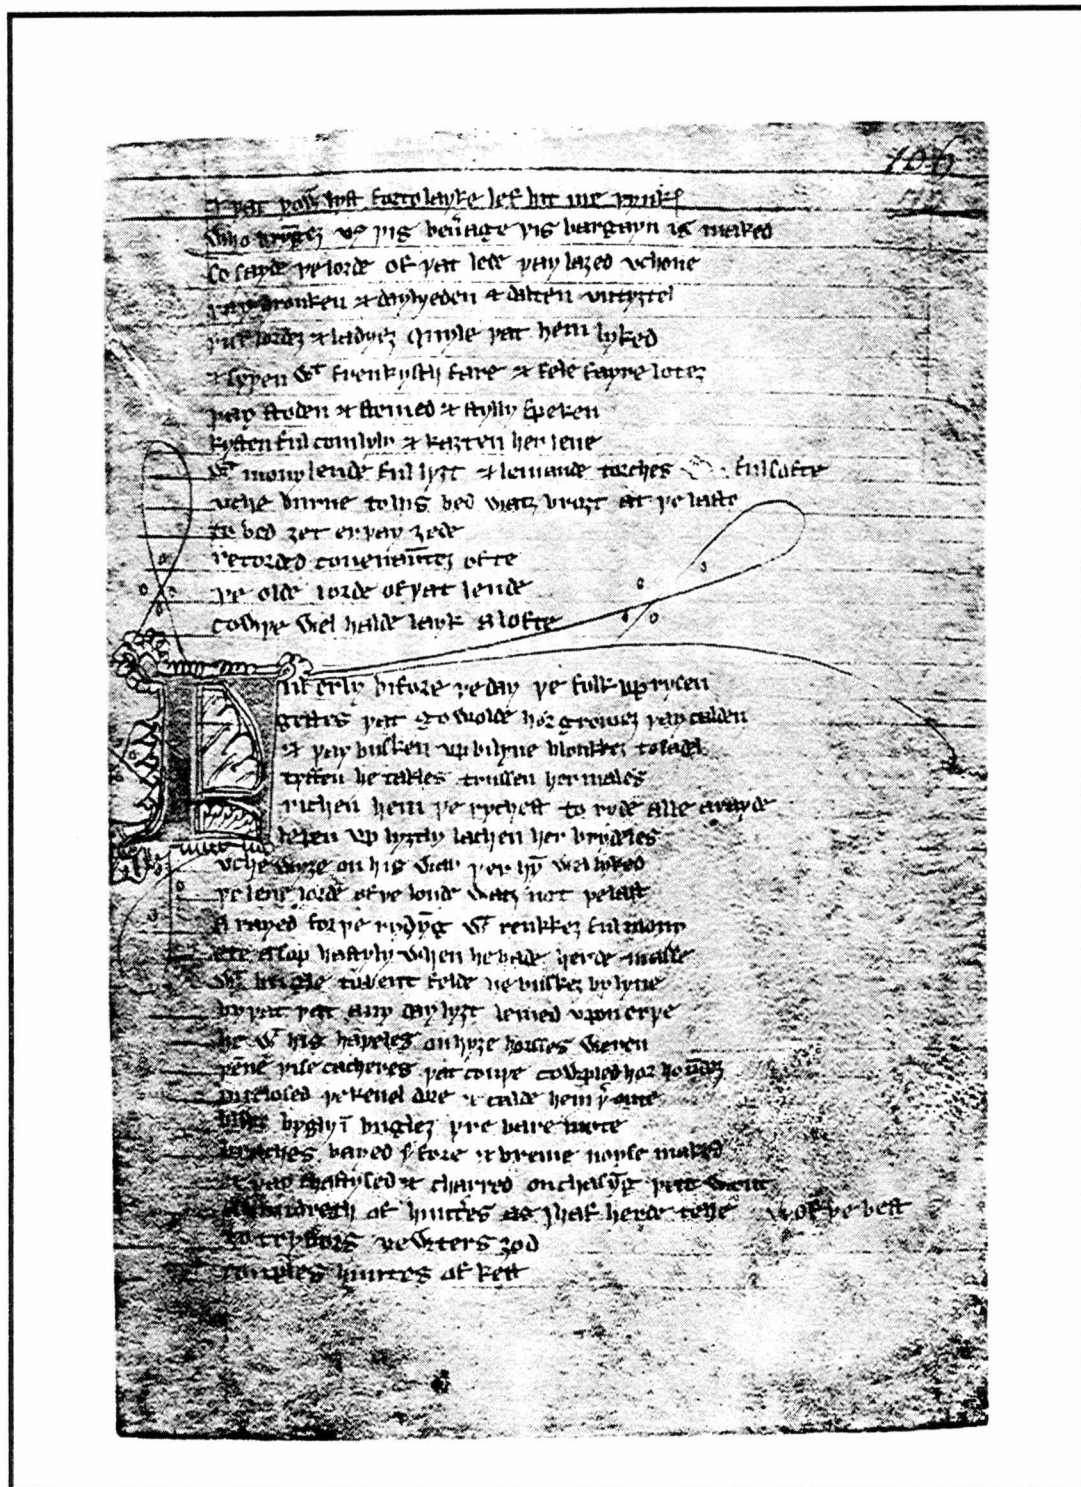 & þat yow lyst forto layke lef hit me þynkes
who bryngez vus þis beu̅age þis bargayn is maked
so sayde þe lorde of þat lede þay laȝed vchone
þay dronken & daylyeden & dalten vntyȝtel
þise lordez & ladyez quyle þat hem lyked
& syþen wᵗ frenkysch fare & fele fayre lotez
þay stoden & stemed & stylly speken
kysten ful comlyly & kaȝten her leue
wᵗ mony leude ful lyȝt & lemande torches ful softe
vche burne to his bed watz broȝt at þe laste
to bed ȝet er þay ȝede
recorded couenau̅tez ofte
þe olde lorde of þat leude
cowþe wel halde layk alofte
Ful erly bifore þe day þe folk vp rysen
gestes þat go wolde hor gromez þay calden
& þay busken vp bilyue blonkkez to sadel
tyffen he takles trussen her males
richen hem þe rychest to ryde alle arayde
lepen vp lyȝtly lachen her brydeles
vche wyȝe on his way þer hy̅ wel lyked
þe leue lorde of þe londe watz not þe last
Arayed for þe rydy̅g wᵗ renkkez ful mony
ete a sop hastyly when he hade herde masse
wᵗ bugle to bent felde he buskez bylyue
by þat þat any day lyȝt lemed vpon erþe
he wᵗ his haþeles on hyȝe horsses weren
þen̅e þise cacheres þat couþe cowpled hor hou̅dez
vnclosed þe kenel dore & calde hem þʳ oute
blwe bygly i̅ buglez þre bare mote
braches bayed þʳfore & breme noyse maked
& þay chastysed & charred on chasy̅g þat went
A hundreth of hunt̉es as I haf herde telle of þe best
to trystors vewters ȝod
couples huntes of kest